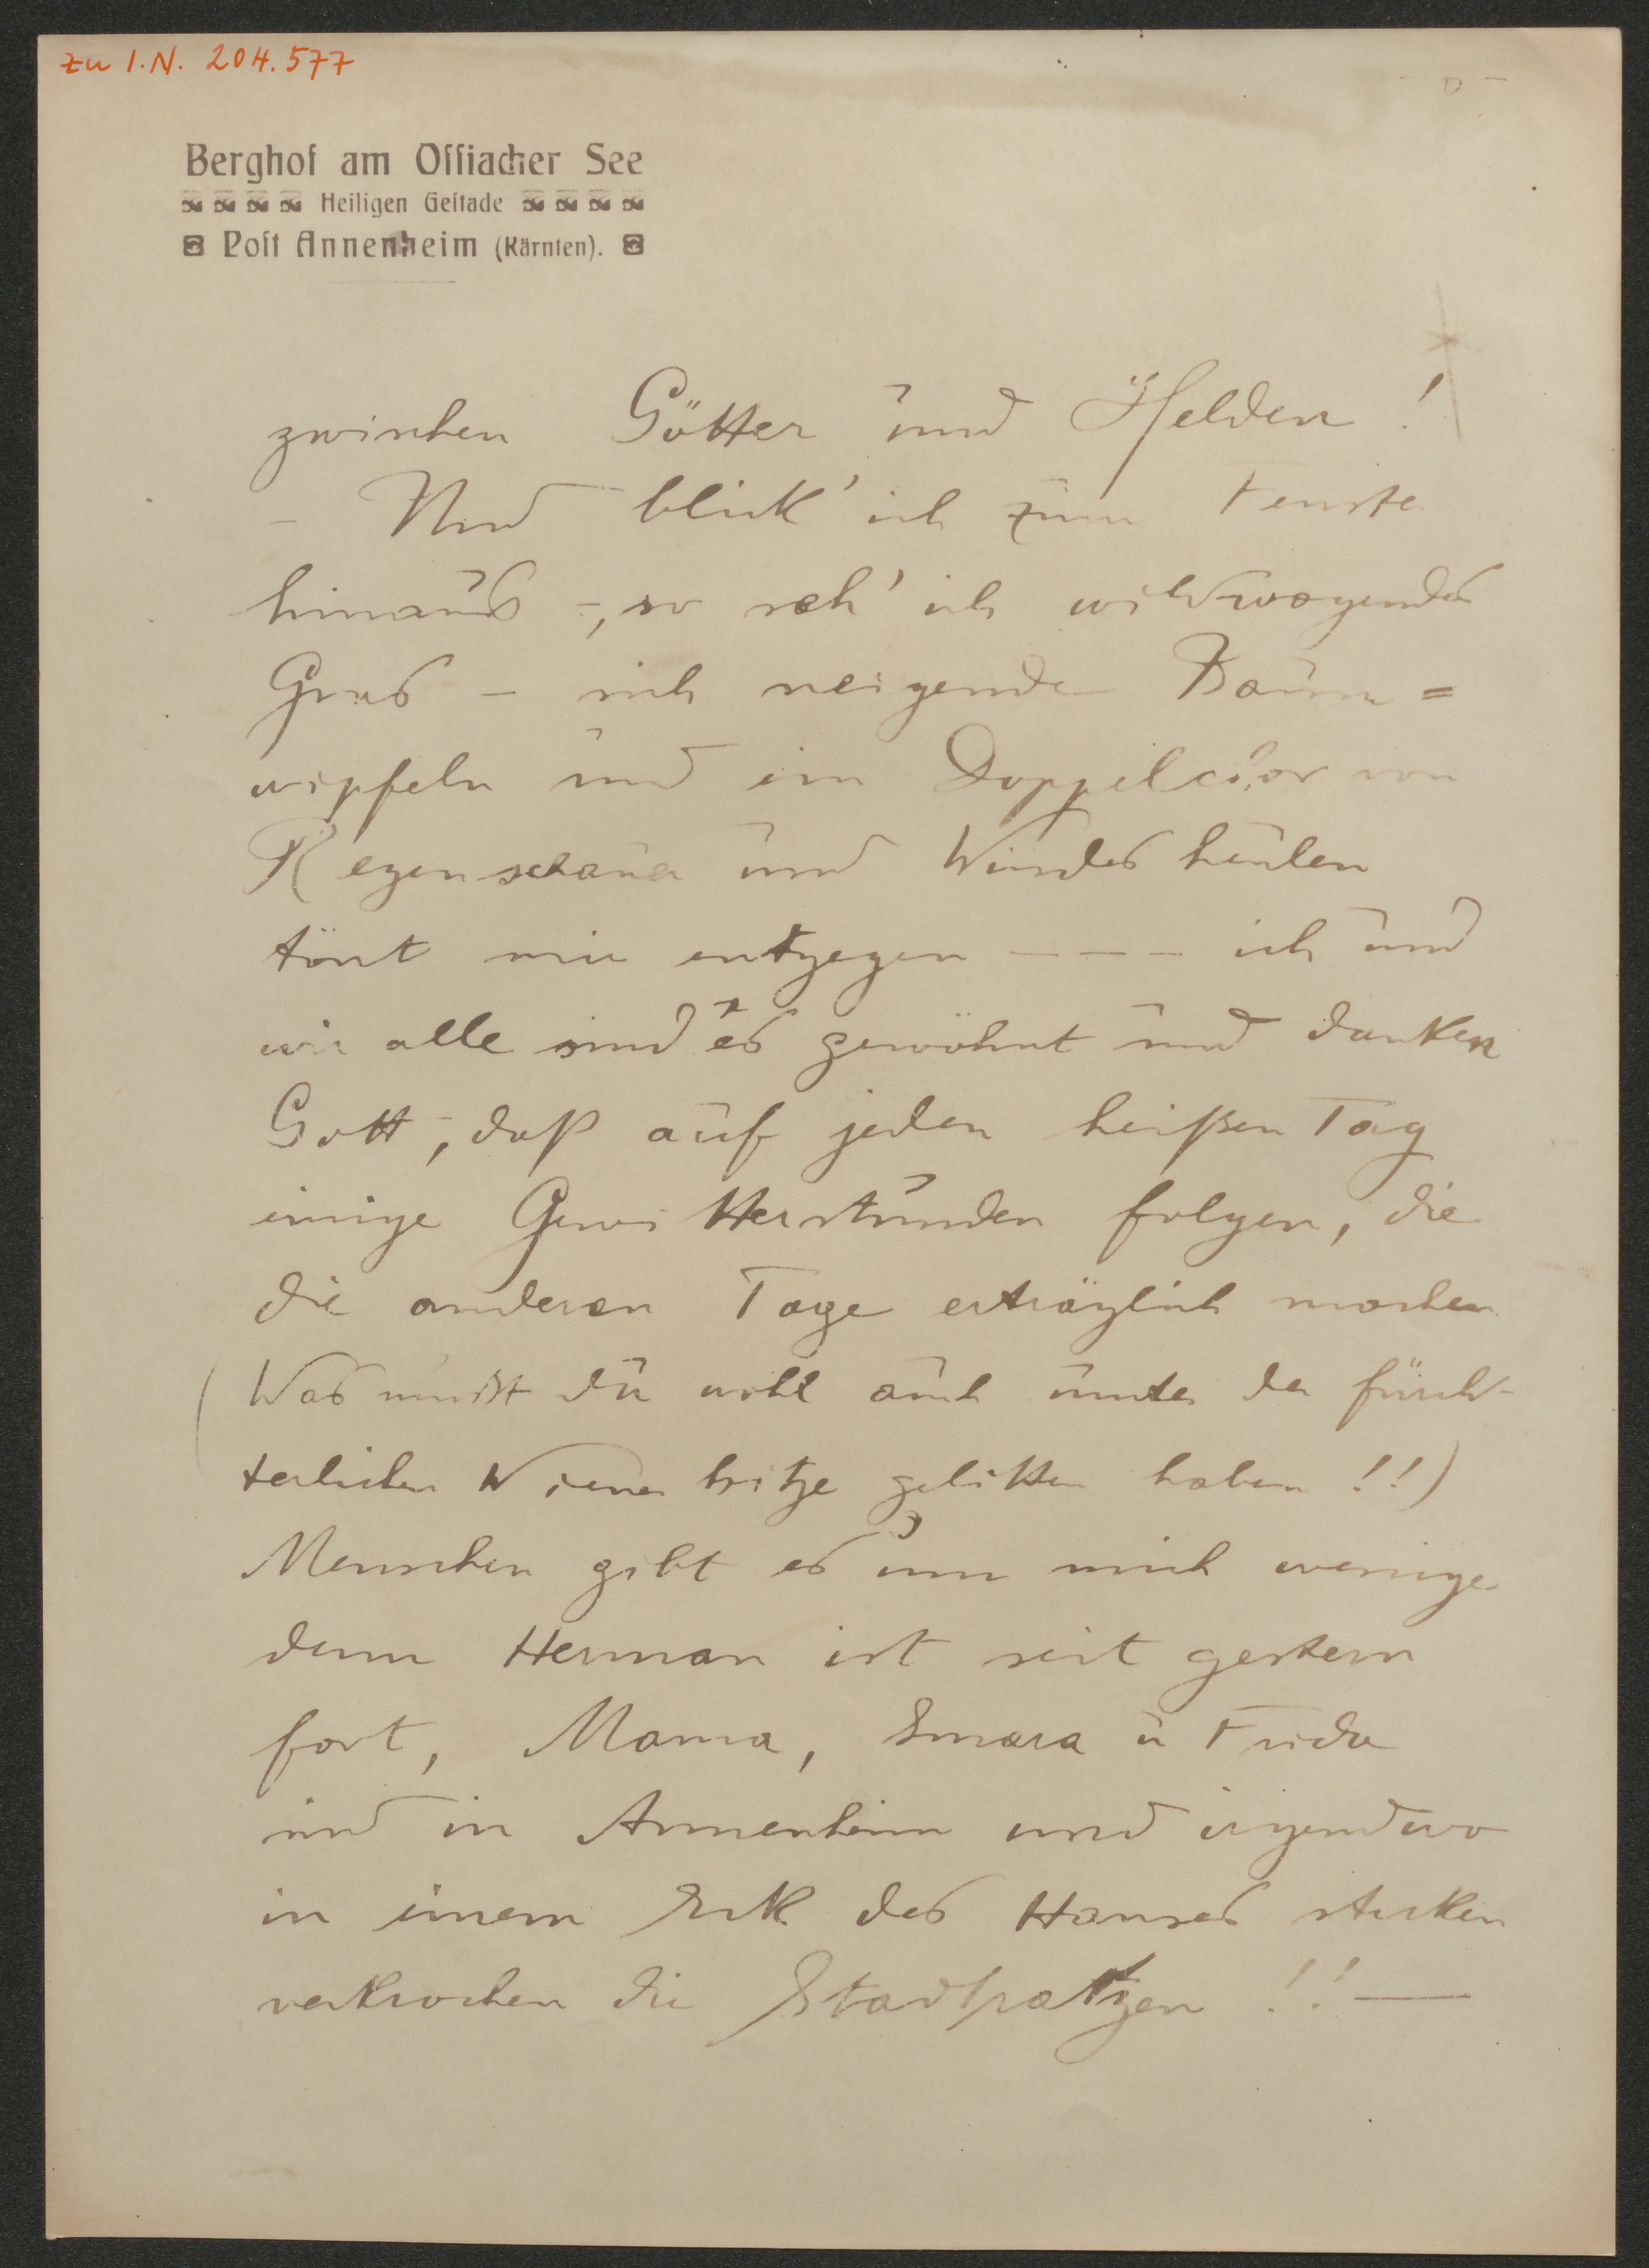 zu I.N. 204.577
Berghof am Ossiacher See
Heiligen Gestade
Post Annenheim (Kärnten).
zwischen Götter und Helden!
- Und blick' ich zum Fenster
hinaus -, so seh' ich wildwogendes
Gras - sich neigende Baum=
wipfeln und im Doppelchor von
Regenschauer und Windesheulen
tönt mir entgegen - - - ich und
wir alle sind es gewöhnt und danken
Gott -, daß auf jeden heißen Tag
einige Gewitterstunden folgen, die
die anderen Tage erträglich machen
(Was mußt du wohl auch unter der fürch-
terlichen Wiener hitze gelitten haben!!)
Menschen gibt es um mich wenige
denn Herman ist seit gestern
fort, Mama, Smara u Frida
sind in Annenheim und irgendwo
in einem Eck des Hauses stecken
verkrochen die Stadtpatzen!! —